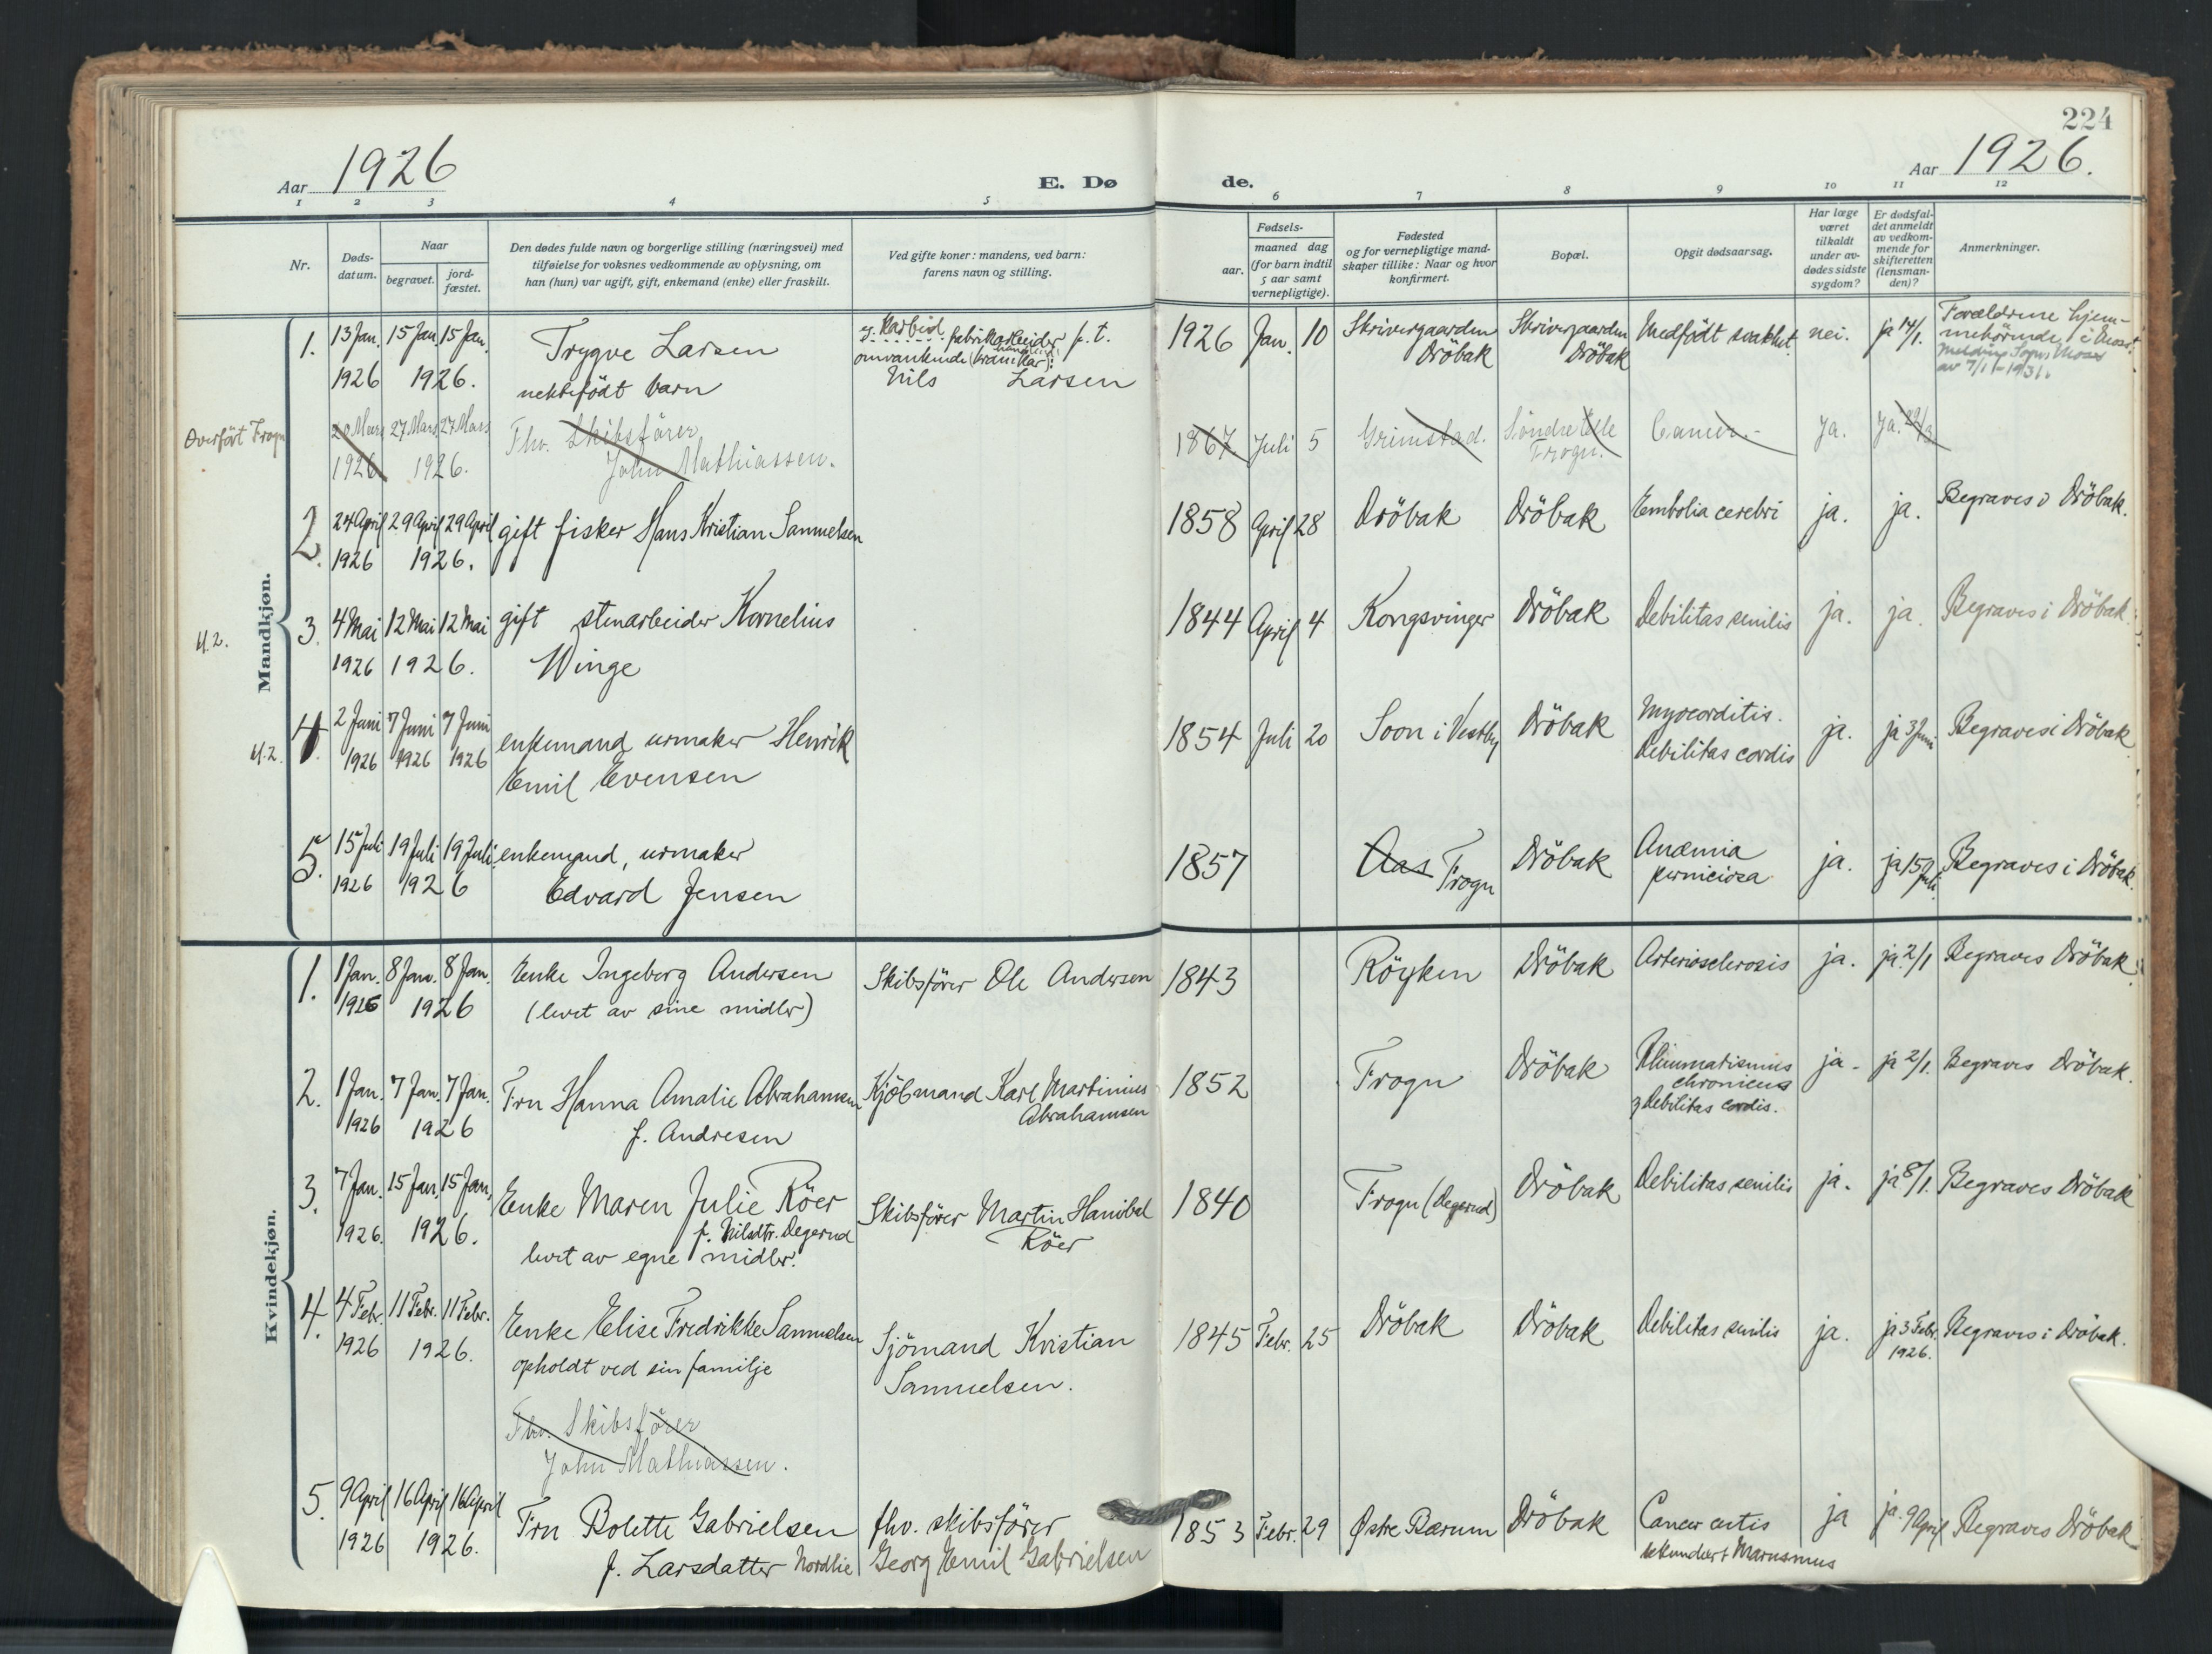 224
Aar 1926
E. Dø de.
Aar 1926.
1 2 3 4 5 6 7 8 9 10 11 12
Nr.
Døds-
datum.
Naar
begravet.
jord-
fæstet.
Den dødes fulde navn og borgerlige stilling (næringsvei) med
tilføielse for voksnes vedkommende av oplysning, om
han (hun) var ugift, gift, enkemand (enke) eller fraskilt.
Ved gifte koner: mandens, ved barn:
farens navn og stilling.
Fødsels-
aar.
maaned dag
(for barn indtil
5 aar samt
vernepligtige).
Fødested
og for vernepligtige mand-
skaper tillike: Naar og hvor
konfirmert.
Bopæl.
Opgit dødsaarsag.
Har læge
været
tilkaldt
under av-
dødes sidste
sygdom?
Er dødsfal-
det anmeldt
av vedkom-
mende for
skifteretten
(lensman-
den)?
Anmerkninger.
Mandkjøn.
1.
13 Jan.
1926
15 Jan. 15 Jan.
1926.
Trygve Larsen
nektefödt barn
fabrikarbeider p.t.
omvankende
Nils Larsen
1926 Jan. 10
Skrivergaarden
Dröbak
Skrivergaarden
Dröbak
Medfödt svakhet.
nei.
ja 14/1.
Forældrene hjem-
mehörende i
Overfört Frogn
20 Mars
1926
27 Mars 27 Mars
1926.
Fhv. Skibsförer
John Mathiassen.
1867. Juli 5
Grimstad.
Söndre Elle
Frogn.
Cancer.
Ja.
Ja. 29/3
2.
24 April
1926
29 April 29 April
1926.
gift fisker Hans Kristian Samuelsen
1858 April 28
Dröbak
Dröbak
Embolia cerebri
ja.
ja.
Begraves i Dröbak.
3.
4 Mai
1926
12 Mai 12 Mai
1926.
gift stenarbeider Kornelius
Winge
1844 April 4
Kongsvinger
Dröbak
Debilitas senilis
ja.
ja.
Begraves i Dröbak.
4.
2 Juni
1926
7 Juni
1926
7 Juni
1926
enkemand urmaker Henrik
Emil Evensen
1854 Juli 20
Soon i Vestby
Dröbak
Myocorditis.
Debilitas cordis
ja.
ja 3 Juni
Begraves i Dröbak
5.
15 Juli
1926
19 Juli 19 Juli
1926
enkemand, urmaker
Edvard Jensen
1857
Aas Frogn
Dröbak
Anæmia
perniciosa
ja.
ja 15 Juli.
Begraves i Dröbak.
Kvindekjøn.
1.
1 Jan.
1926
8 Jan. 8 Jan.
1926
Enke Ingeborg Andersen
(levet av sine midler)
Skibsförer Ole Andersen
1843
Röyken
Dröbak
Arteriosclerosis
ja.
ja. 2/1
Begraves Dröbak.
2.
1 Jan.
1926
7 Jan. 7 Jan.
1926
Fru Hanna Amalie Abrahamsen
f. Andresen
Kjöbmand Karl Martinius
Abrahamsen
1852
Frogn
Dröbak
Rheumatismus
chronicus
& debilitas cordis.
ja -
ja 2/1.
Begraves Dröbak.
3.
7 Jan.
1926.
15 Jan. 15 Jan.
1926.
Enke Maren Julie Röer
f. Nilsdtr. Degerud
levet av egne midler.
Skibsförer Martin Hanibal
Röer
1840
Frogn (Degerud)
Dröbak
Debilitas senilis
ja.
ja 8/1.
Begraves Dröbak
4.
4 Febr.
1926
11 Febr. 11 Febr.
1926.
Enke Elise Fredrikke Samuelsen
opholdt ved sin familje
Sjömand Kristian
Samuelsen.
1845 Febr. 25
Dröbak
Dröbak
Debilitas senilis
ja.
ja 3 Febr.
1926.
Begraves i Dröbak.
Fhv. Skibsförer
John Mathiassen.
5.
9 April
1926
16 April 16 April
1926.
Fru Bolette Gabrielsen
f. Larsdatter Nordlie
fhv. skibsförer
Georg Emil Gabrielsen
1853 Febr. 29
Østre Bærum
Dröbak
Cancer cutis
sekundært Marasmus
ja
ja. 9 April
Begraves Dröbak